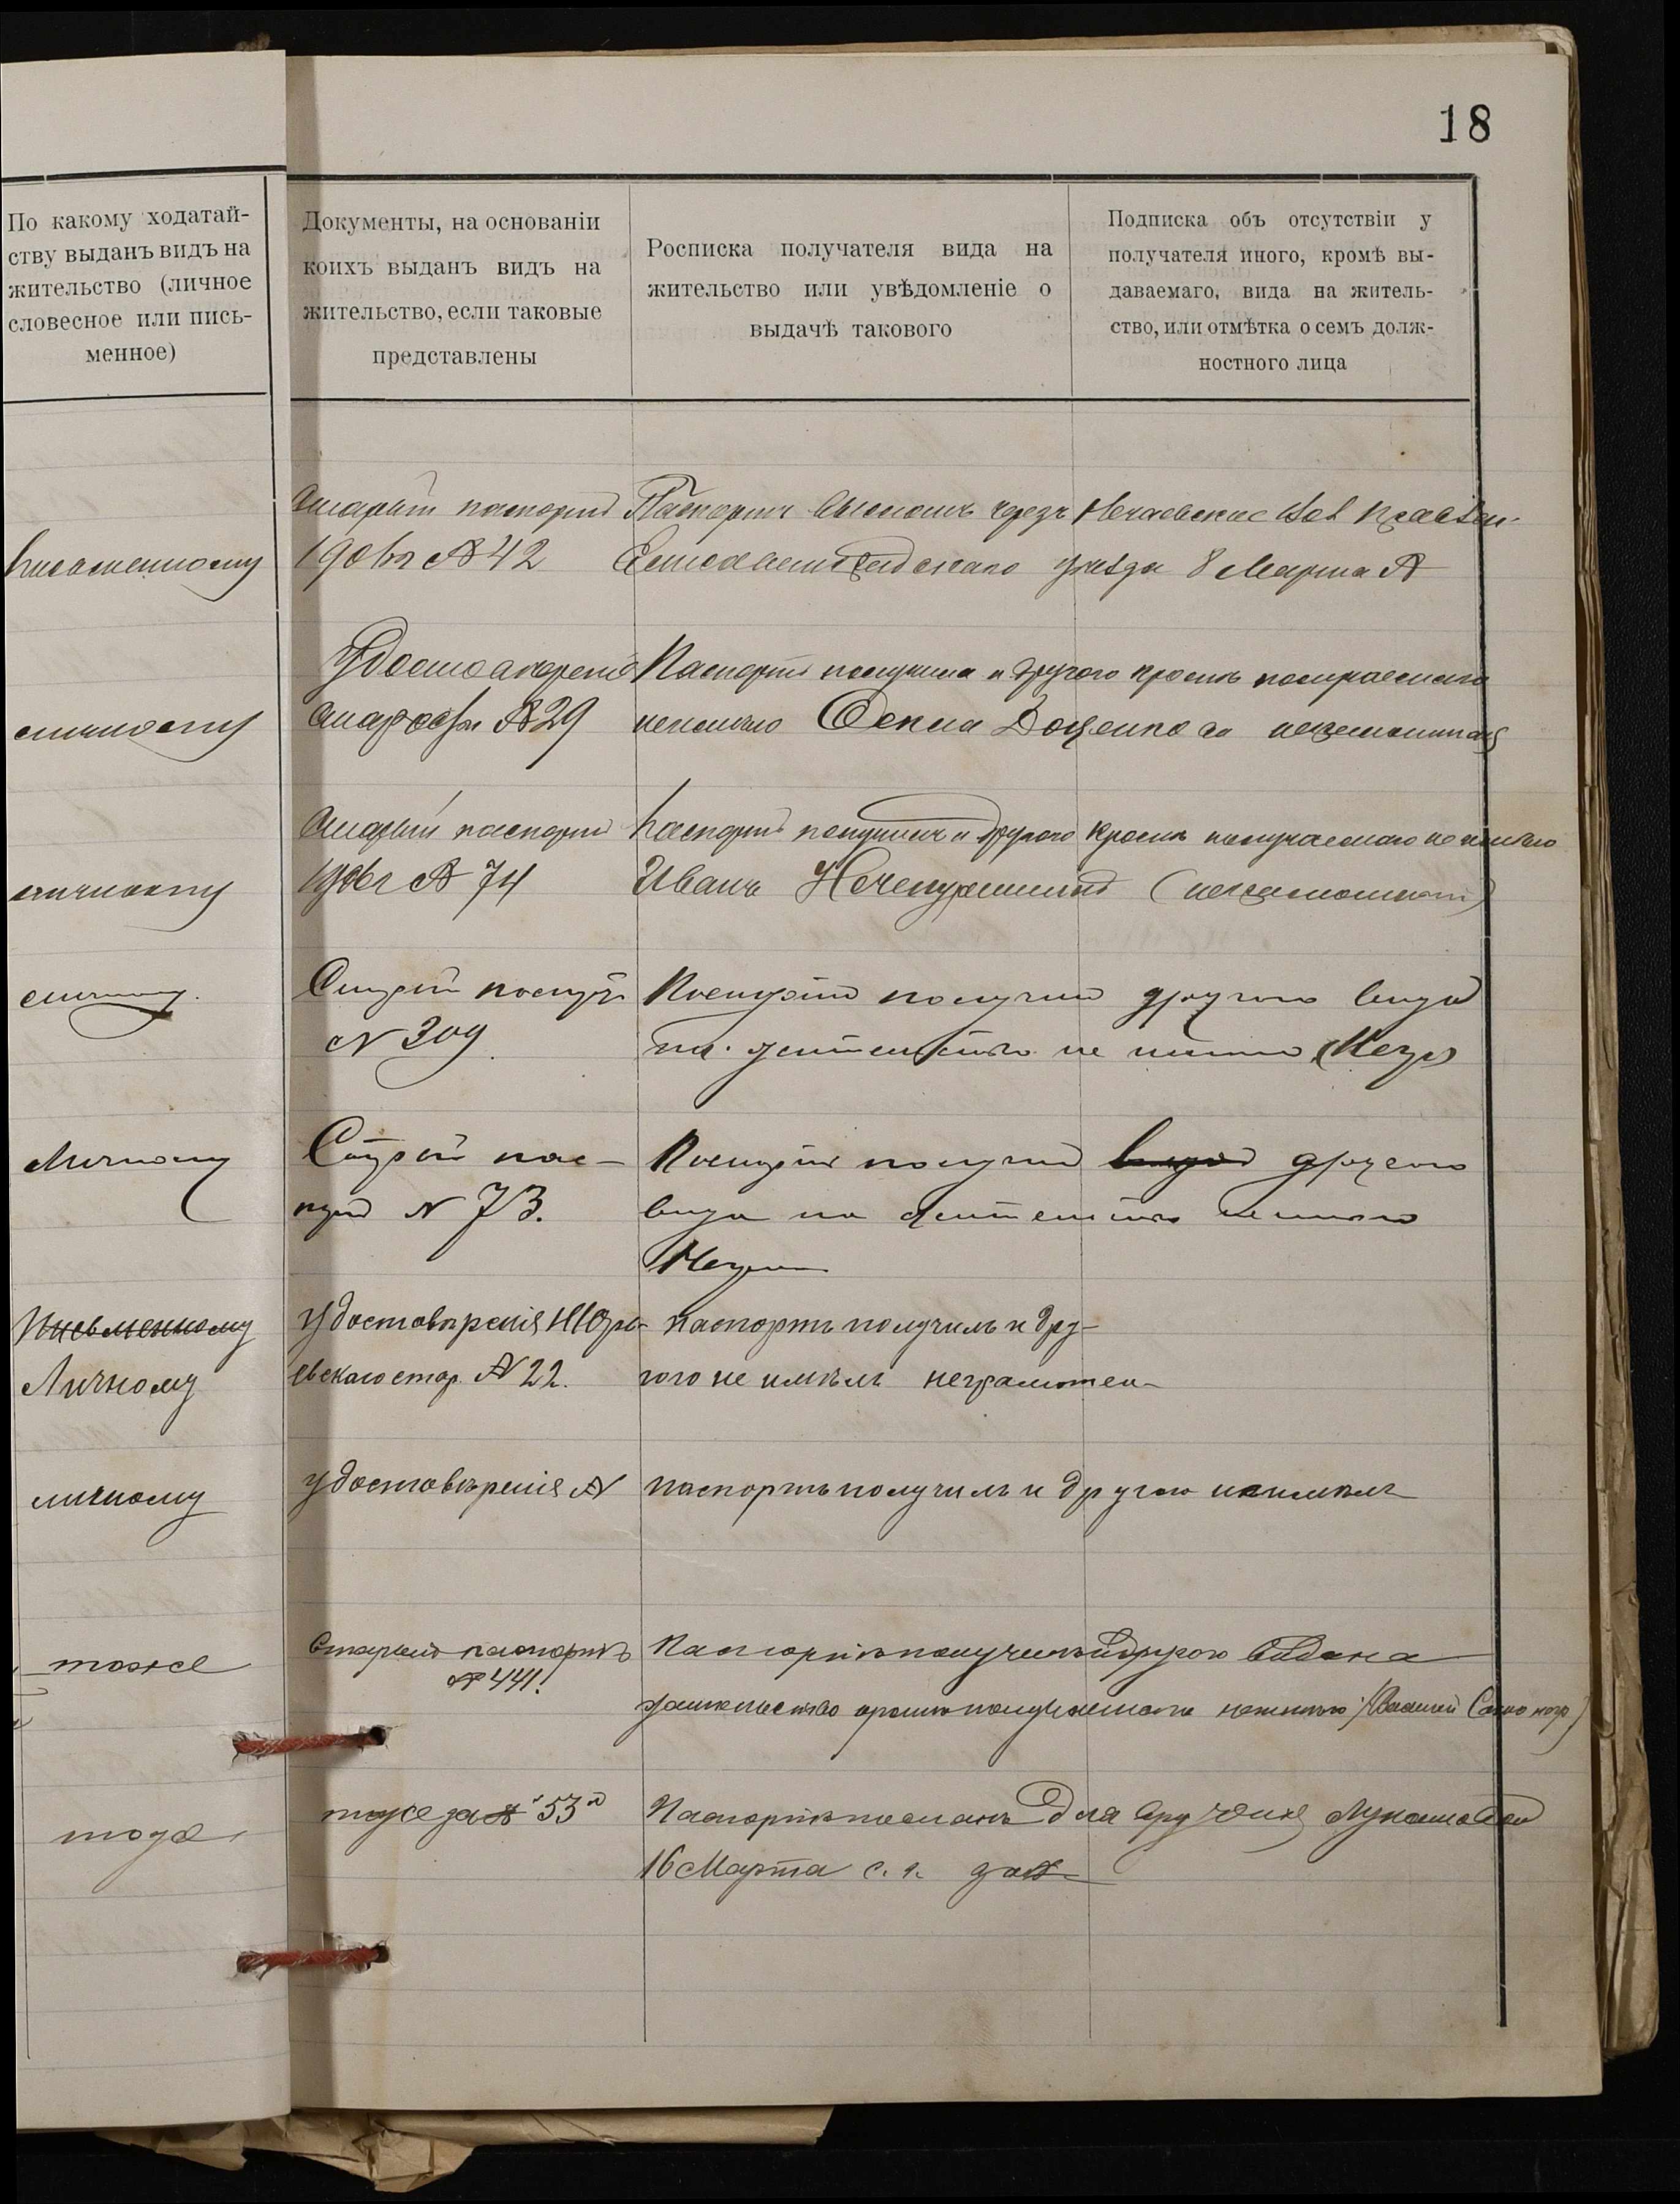 18
По какому ходатай-
ству выданъ видъ на
жительство (личное
словесное или пись-
менное)
Документы, на основаніи
коихъ выданъ видъ на
жительство, если таковые
представлены
Росписка получателя вида на
жительство или увѣдомленіе о
выдачѣ такового
Подписка объ отсутствіи у
получателя иного, кромѣ вы-
даваемаго, вида на житель-
ство, или отмѣтка о семъ долж-
ностного лица
письменному
Старый паспортъ
1906 г № 42
Паспортъ высланъ черезъ Нечаевское Вол Правлен.
Елисаветградскаго уѣзда 8 Марта №
личному
Удостоверенія
старосты № 29
Паспортъ получила и другого кромѣ получаемаго
неимѣю Доценкова неграмотная
личному
Старый паспортъ
1906 г № 74
Паспортъ получилъ и другого кромѣ получаемаго не имѣю
Иванъ (неграмотный)
личному
Старый паспортъ
№ 309
Паспортъ получилъ другого вида
на жительство не имѣю (Негр)
Личному
Старый пас-
портъ № 73.
Паспортъ получилъ видъ другого
вида на жительство неимѣю
Негр
Письменному
Личному
Удостовѣренія
евскаго стар. № 22.
паспортъ получилъ и дру-
гого не имѣлъ неграмотен
личному
Удостовѣренія №
паспортъ получилъ и другого неимѣлъ
тоже
Старый паспортъ
№ 441.
Паспортъ получилъ и другого вида на
жительство кромѣ получаемаго неимѣю
тоже
тоже за № 53
Паспортъ посланъ для вручения
16 Марта с. г. за №